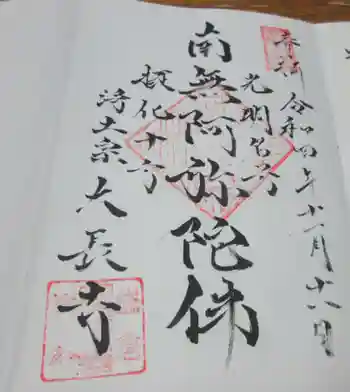 奉拝 令和四年十一月十八日
光明名号
南無阿弥陀佛
摂化十方
浄土宗 大長寺